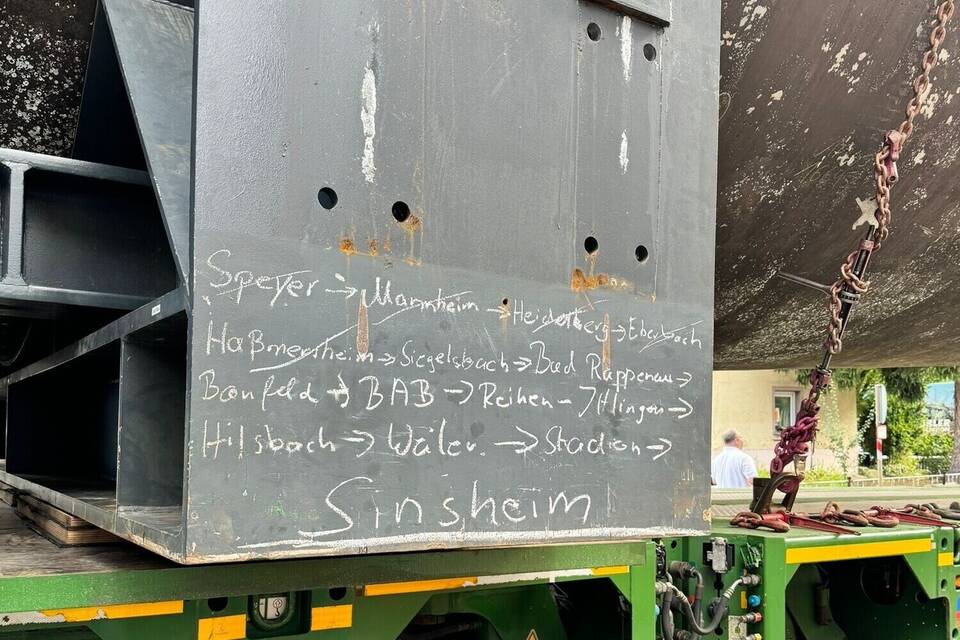 Speyer → Mannheim → Heidelberg → Eberbach
Haßmersheim → Siegelsbach → Bad Rappenau →
Bonfeld → BAB → Reihen - Ittlingen →
Hilsbach → Weiler → Stadion →
Sinsheim